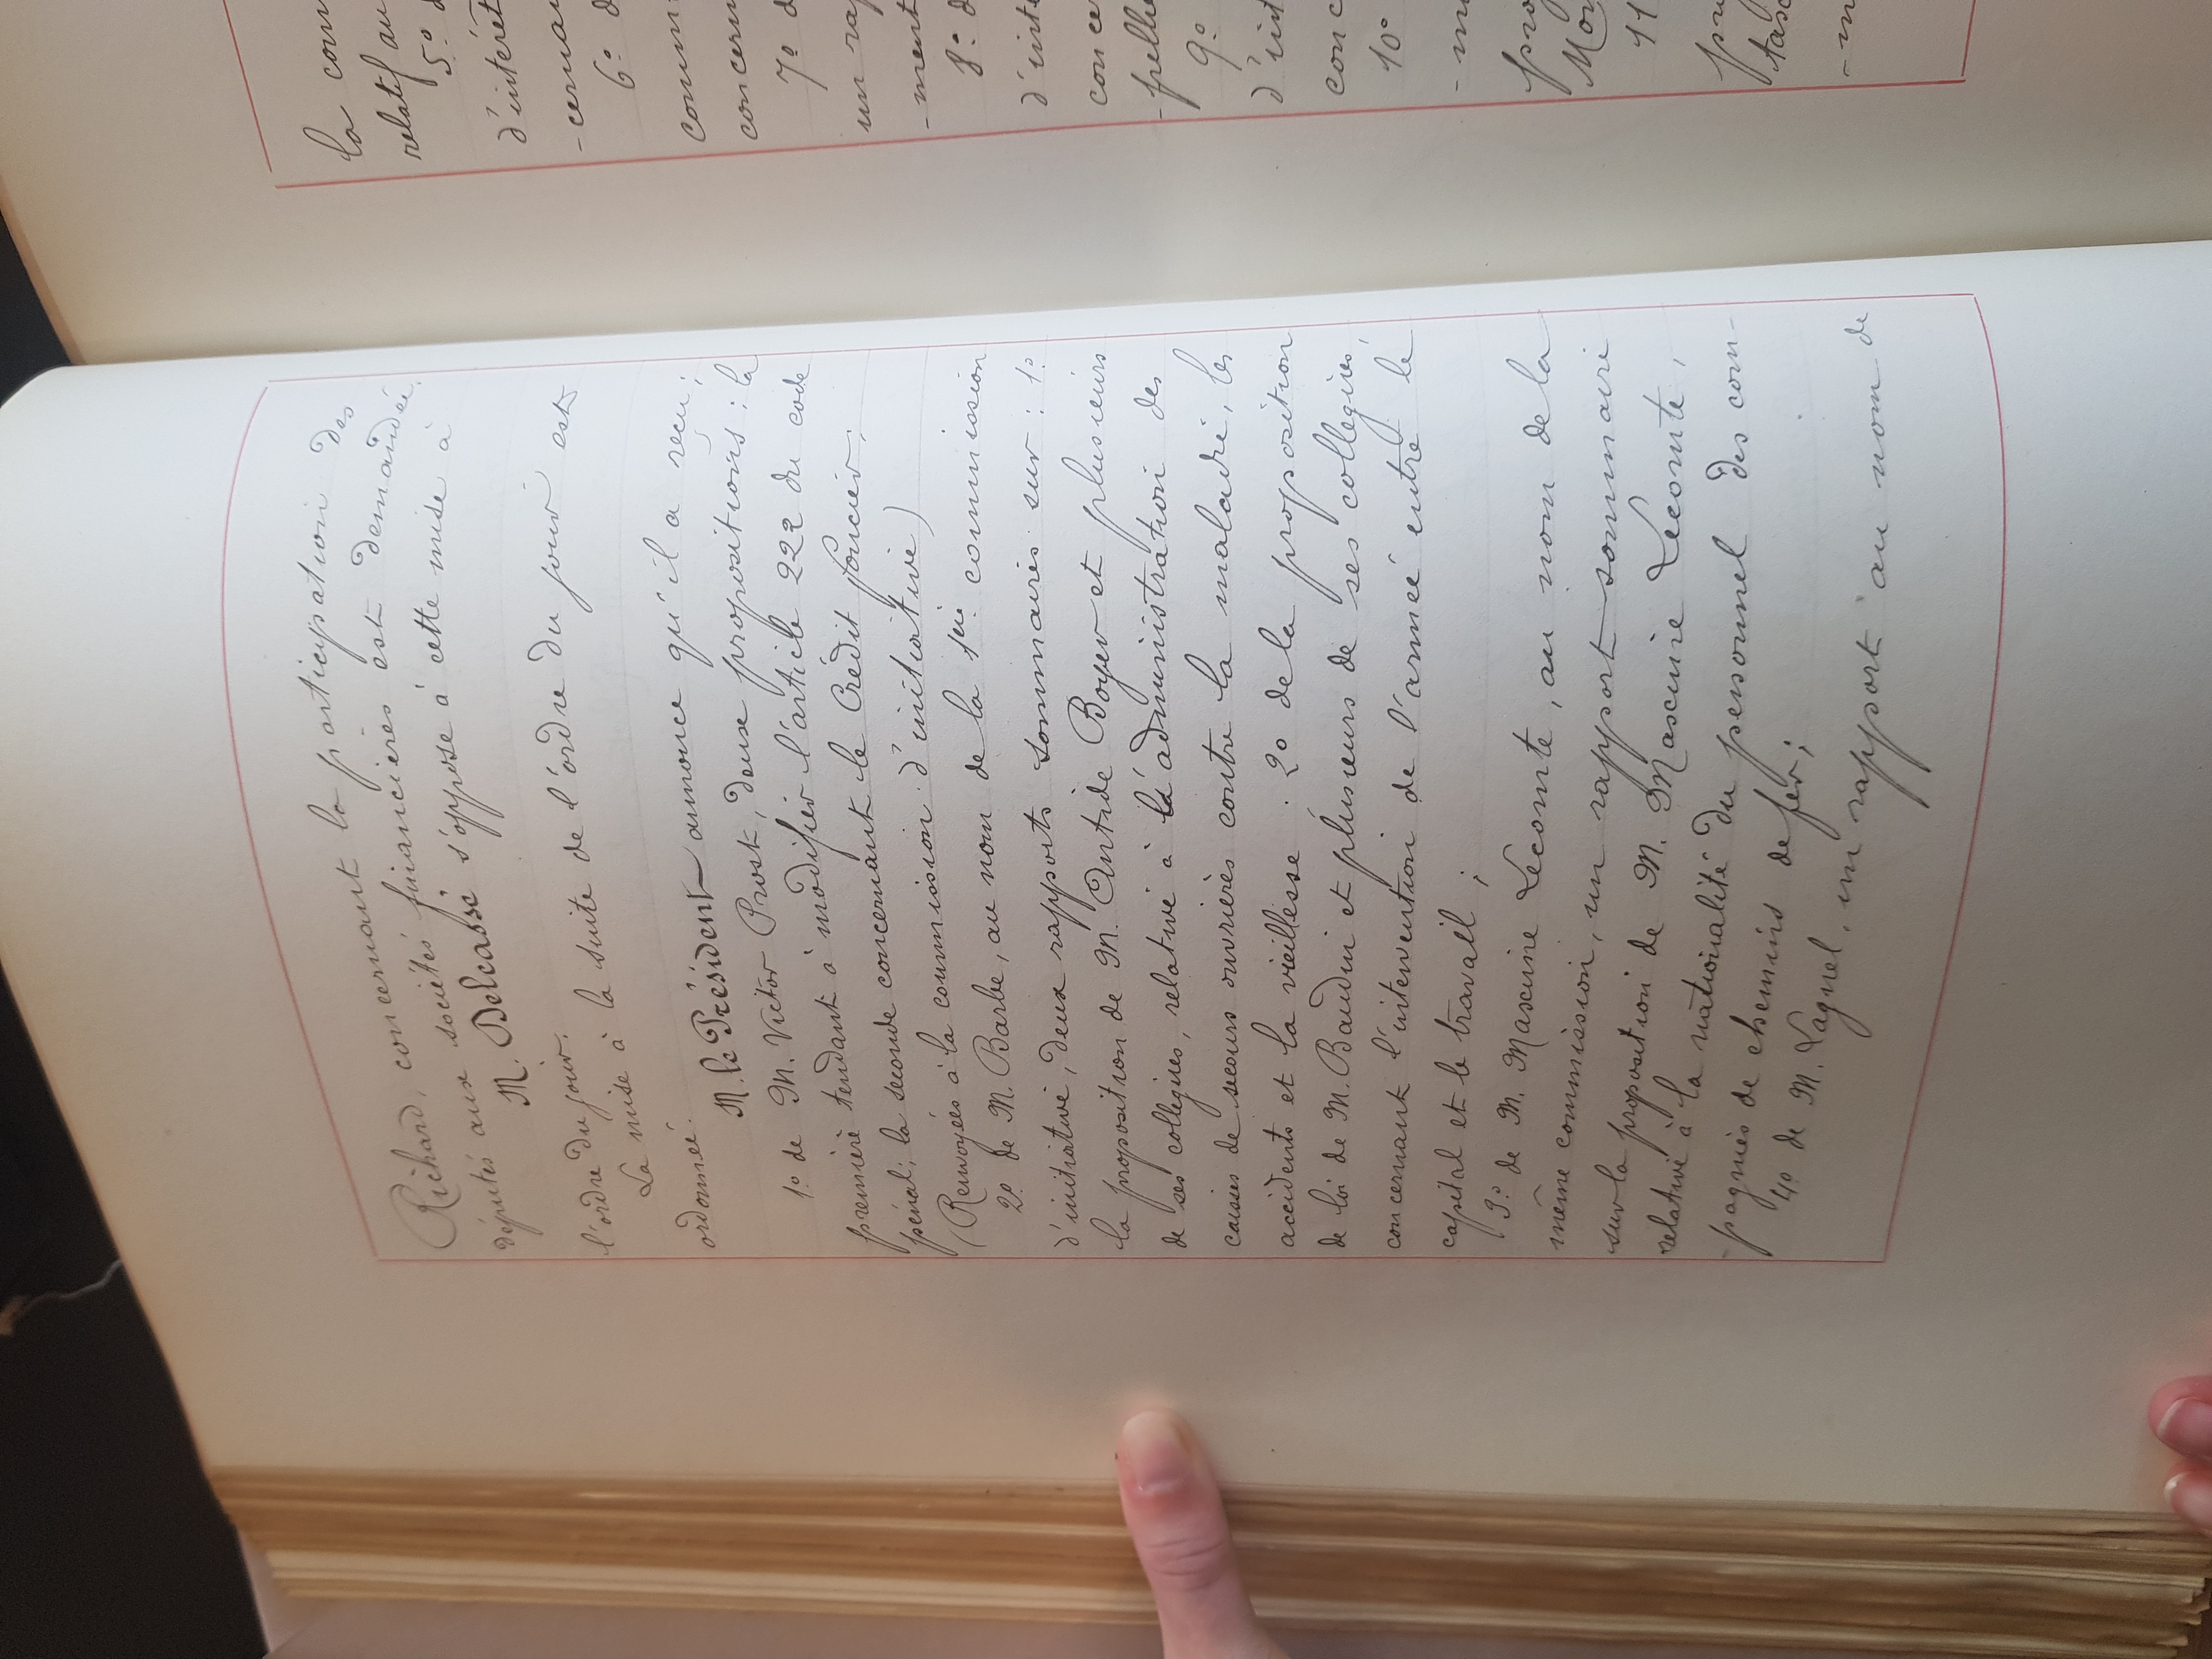 Richard, concernant la participation des
députés aux sociétés financières est demandée.
M. Delcassé s'oppose à cette mise à
l'ordre du jour.
La mise à la suite de l'ordre du jour est
ordonnée.
M. le Président annonce qu'il a reçu;
1º de M. Victor Prost, deux propositions: la
première tendant à modifier l'article 222 du code
pénal; la seconde concernant le Crédit foncier;
(Renvoyées à la commission d'initiative)
2º de M. Barbe, au nom de la 1re commission
d'initiative, deux rapports sommaires sur: 1º
la proposition de M. Antide Boyer et plusieurs
de ses collègues, relative à l'administration des
caisses de secours ouvrières contre la maladie, les
accidents et la vieillesse. 2º de la proposition
de loi de M. Baudin et plusieurs de ses collègues
concernant l'intervention de l'armée entre le
capital et le travail;
3º de M. Maxime Lecomte, au nom de la
même commission, un rapport sommaire
sur la proposition de M. Maxime Lecomte,
relative à la nationalité du personnel des com-
pagnies de chemins de fer;
4º de M. Laguel, un rapport au nom de
la com
5º d
relatif au
d'intérêt
-cernan
6º d
comm
concern
7º d
un rap
-ment
8º d
d'inté
conce
-pelle
9º
d'int
conc
10º
-m
pro
Mon
11
pr
tas
-m